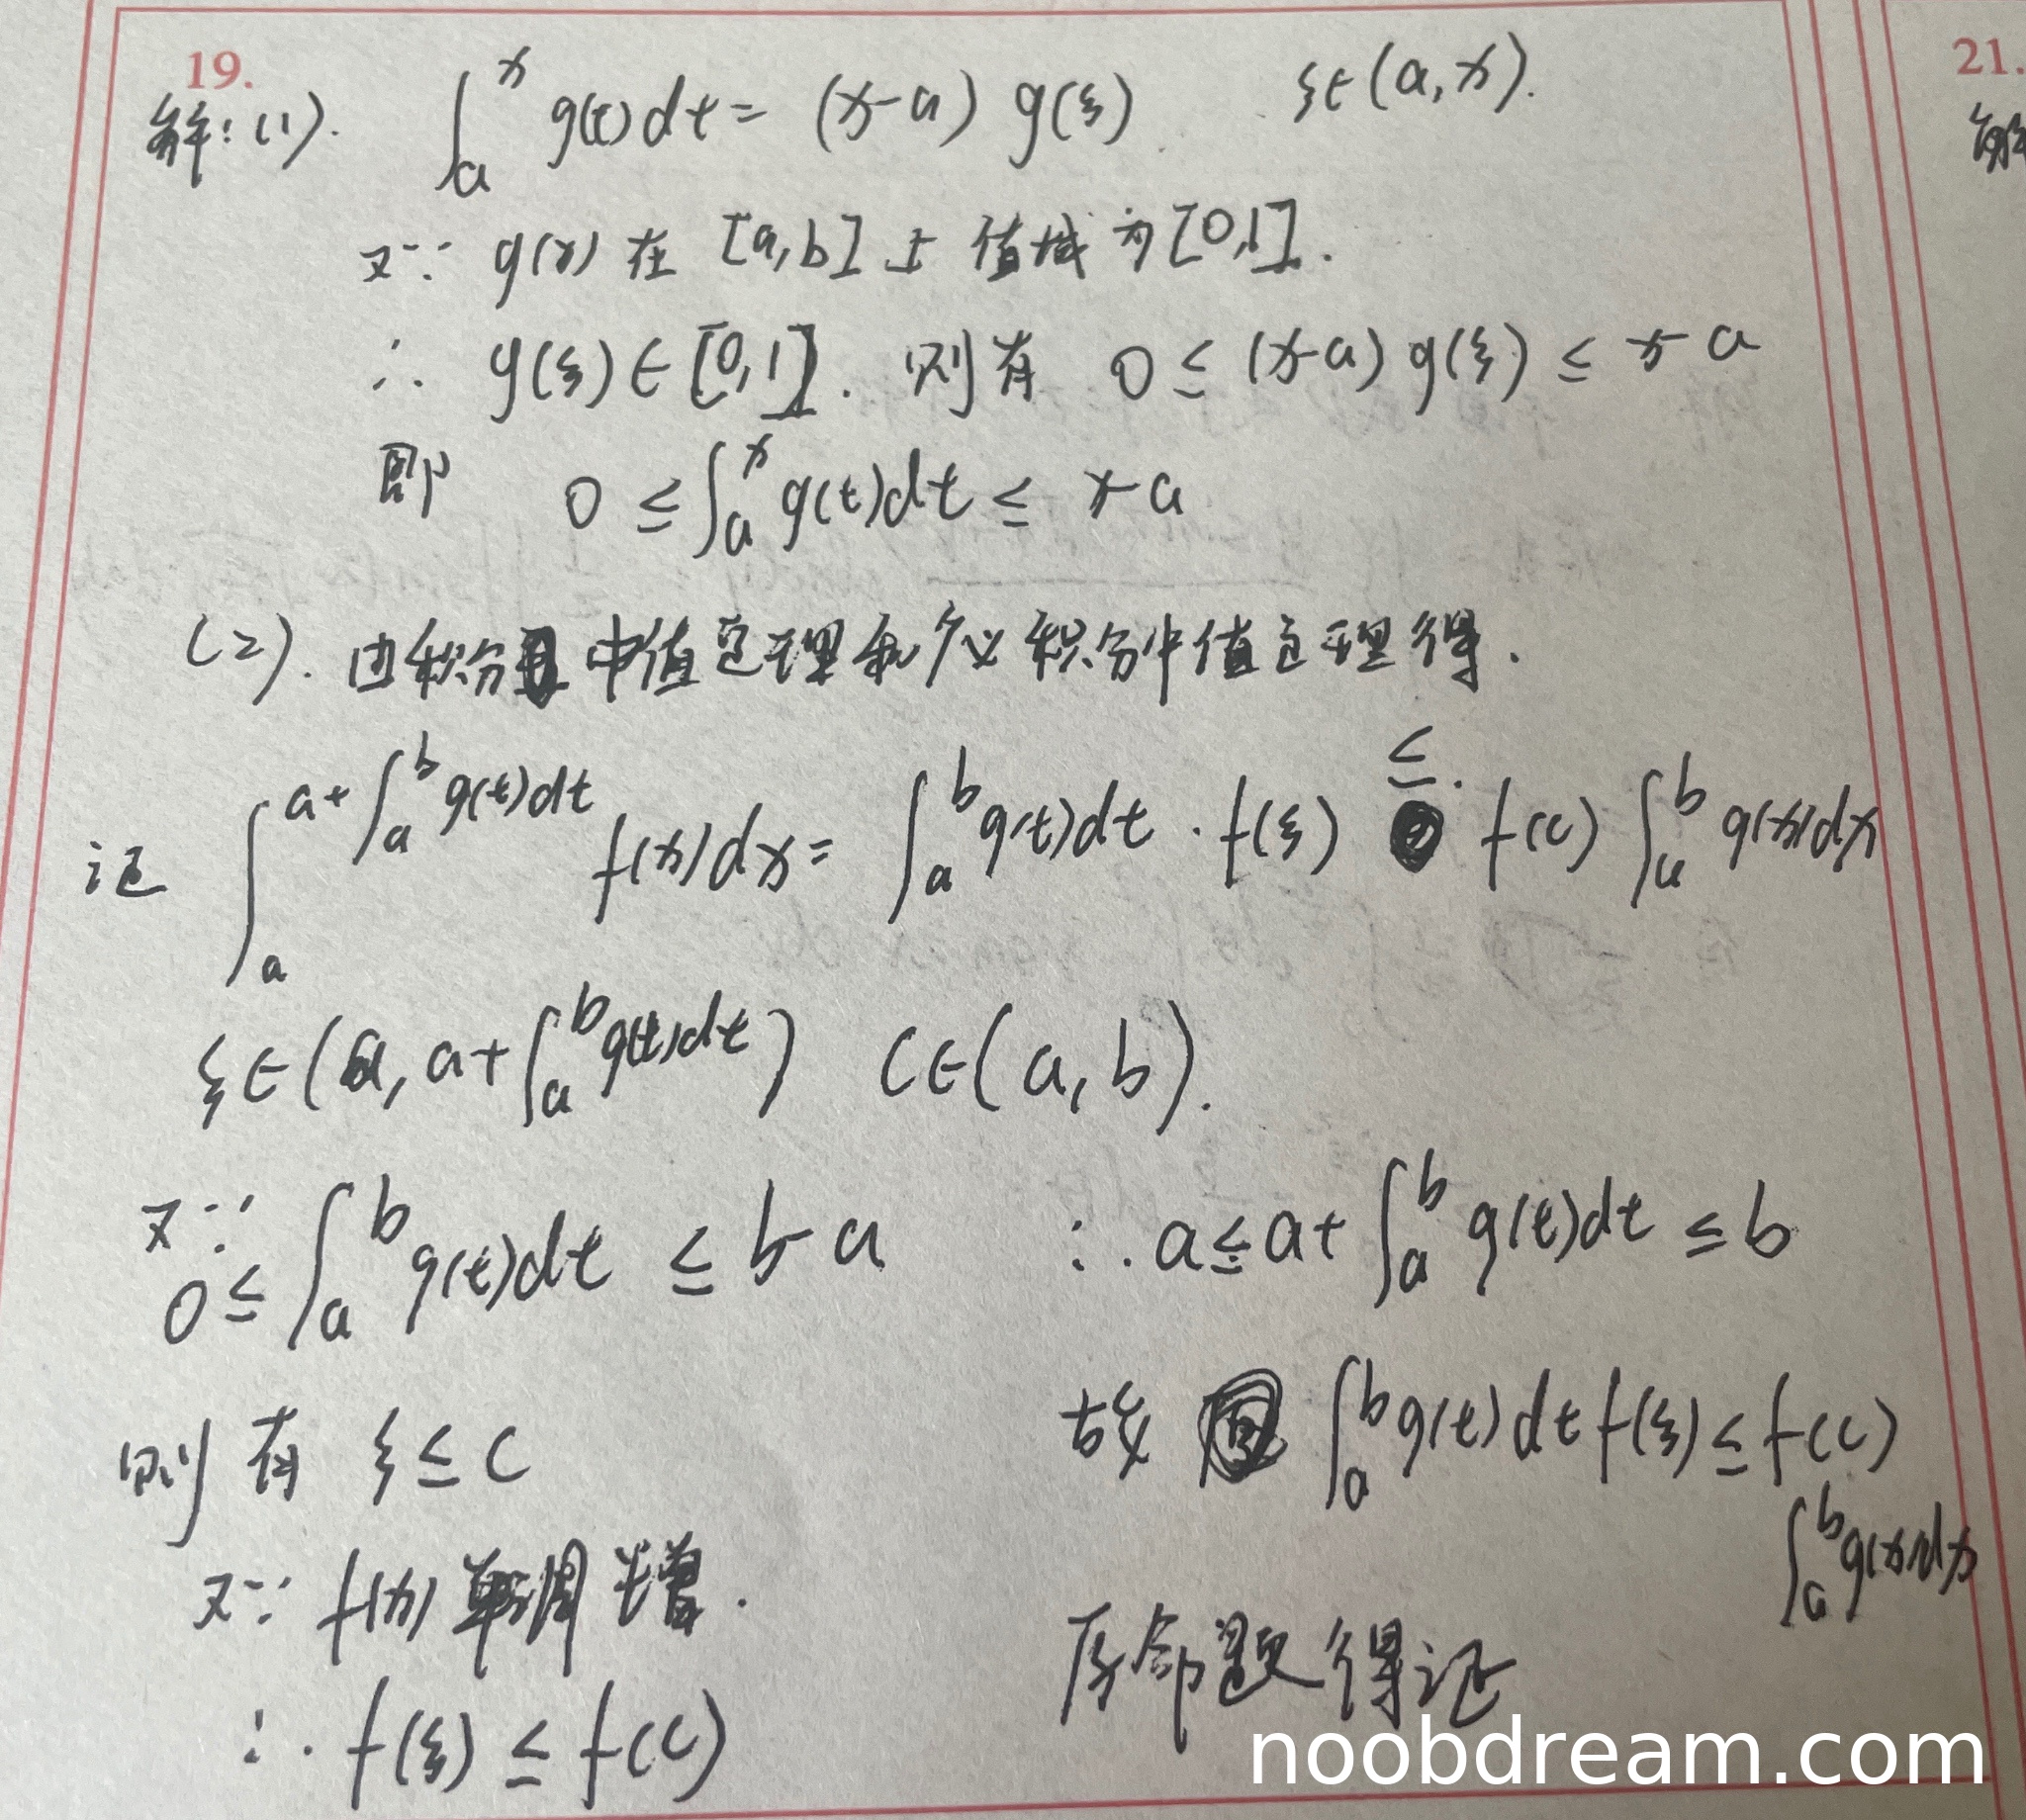 19.
解:(1). ∫ₐˣ g(t)dt = (x-a) g(ξ) ξ∈(a,x).
又∵ g(x) 在 [a,b] 上 值域为 [0,1].
∴ g(ξ)∈[0,1]. 则有 0 ≤ (x-a) g(ξ) ≤ x-a
即 0 ≤ ∫ₐˣ g(t)dt ≤ x-a
(2). 由积分中值定理和广义积分中值定理得.
证 ∫ₐ^(a+∫ₐᵇ g(t)dt) f(x)dx = ∫ₐᵇ g(t)dt · f(ξ) ≤ f(c) ∫ₐᵇ g(x)dx
ξ∈(a, a+∫ₐᵇ g(t)dt) c∈(a,b).
又∵ 0 ≤ ∫ₐᵇ g(t)dt ≤ b-a ∴ a ≤ a+∫ₐᵇ g(t)dt ≤ b
则有 ξ ≤ c
又∵ f(x) 单调增.
∴ f(ξ) ≤ f(c)
故 ∫ₐᵇ g(t)dt f(ξ) ≤ f(c)
∫ₐᵇ g(x)dx
原命题得证
21.
解
noobdream.com